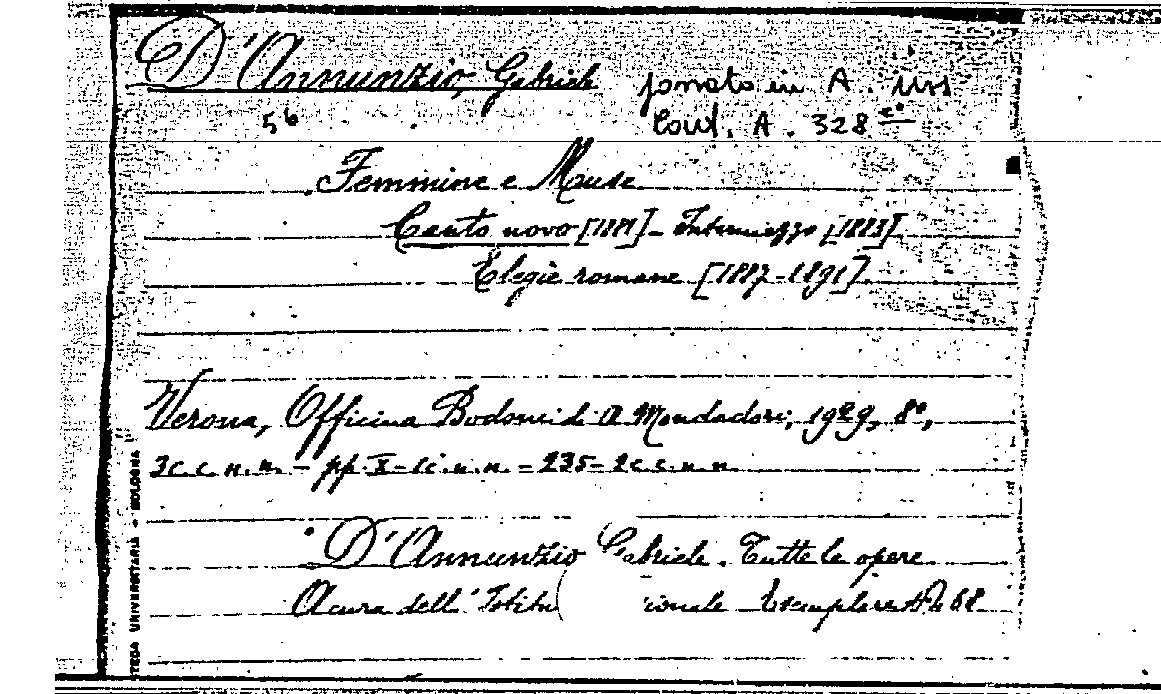 D'Annunzio, Gabriele passato in A. Mss
56 Coll. A. 328
Femmine e Muse
Canto novo [1881] - Intermezzo [1883]
Elegie romane [1887-1891]
Verona, Officina Bodoni di A. Mondadori, 1929, 8°,
3 c. c. n. n. - pp. X - 1 c. n. n. - 235 - 2 c. c. n. n.
D'Annunzio Gabriele. Tutte le opere
A cura dell'Istitu ionale Esemplare 68
TECA UNIVERSITARIA - BOLOGNA